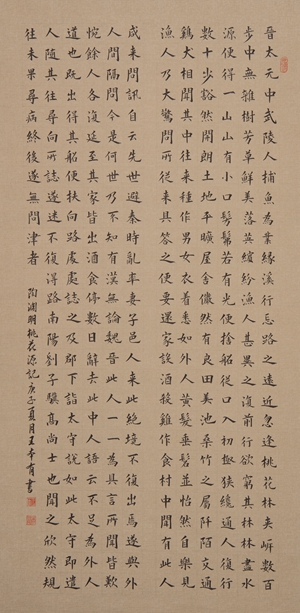 晉太元中武陵人捕魚為業緣溪行忘路之遠近忽逢桃花林夾岸數百
步中無雜樹芳草鮮美落英繽紛漁人甚異之復前行欲窮其林林盡水
源便得一山山有小口髣髴若有光便捨船從口入初極狹纔通人復行
數十步豁然開朗土地平曠屋舍儼然有良田美池桑竹之屬阡陌交通
鷄犬相聞其中往來種作男女衣著悉如外人黃髮垂髫並怡然自樂見
漁人乃大驚問所從來具答之便要還家設酒殺雞作食村中聞有此人
咸來問訊自云先世避秦時亂率妻子邑人來此絕境不復出焉遂與外
人間隔問今是何世乃不知有漢無論魏晉此人一一為具言所聞皆歎
惋餘人各復延至其家皆出酒食停數日辭去此中人語云不足為外人
道也既出得其船便扶向路處處誌之及郡下詣太守說如此太守即遣
人隨其往尋向所誌遂迷不復得路南陽劉子驥高尚士也聞之欣然規
往未果尋病終後遂無問津者
陶淵明桃花源記庚子夏月王本書